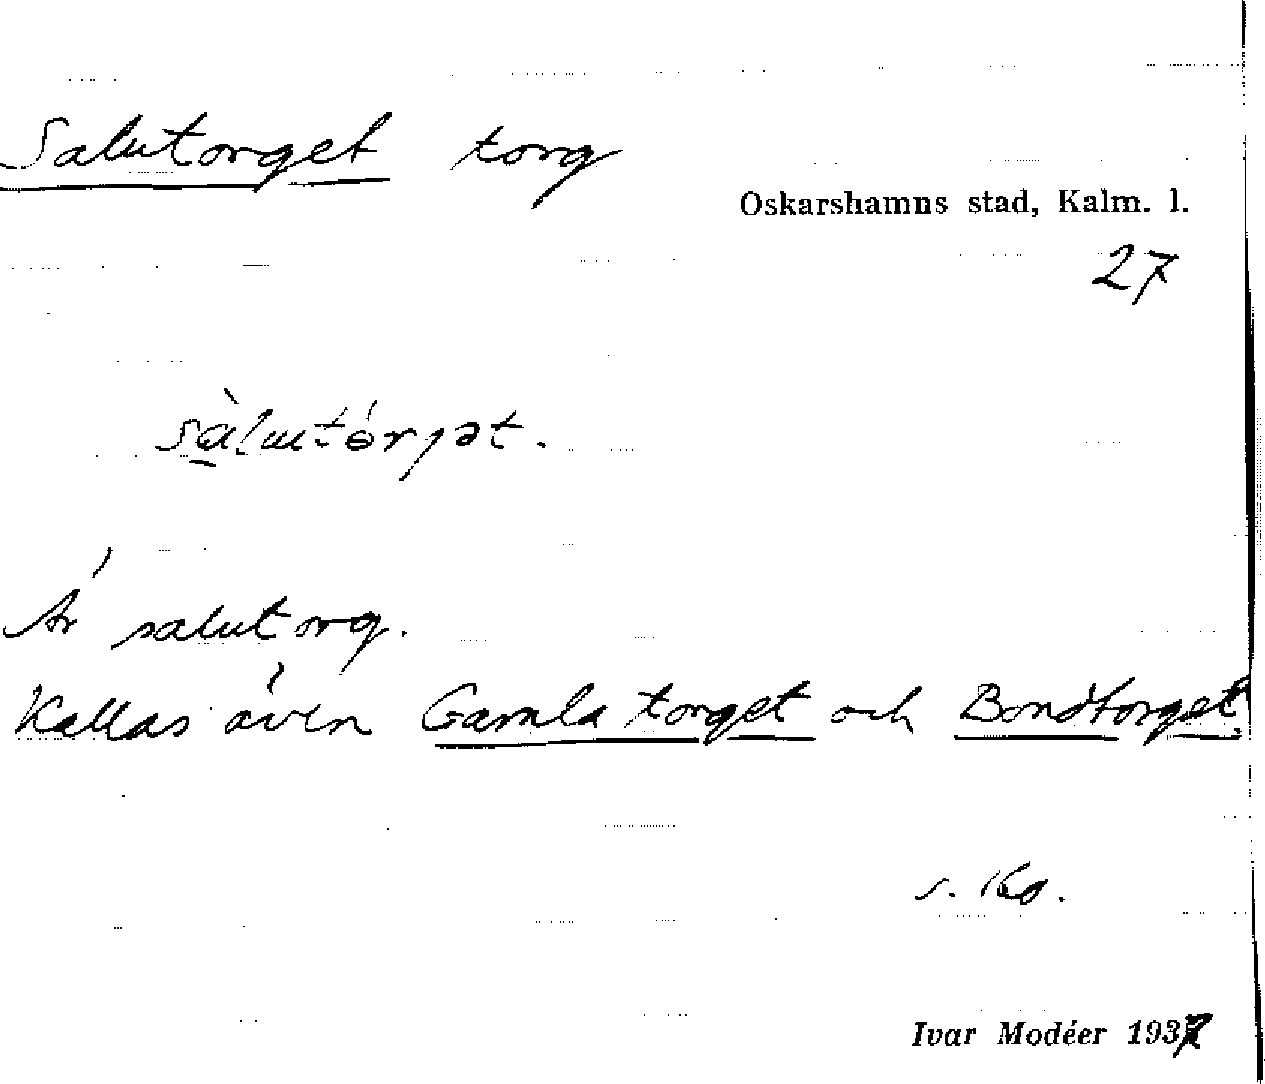 Salutorget torg
Oskarshamns stad, Kalm. l.
27
sàlutórjət.
Är salutorg.
Kallas även Gamla torget och Bondtorget.
s.
Ivar Modéer 1937